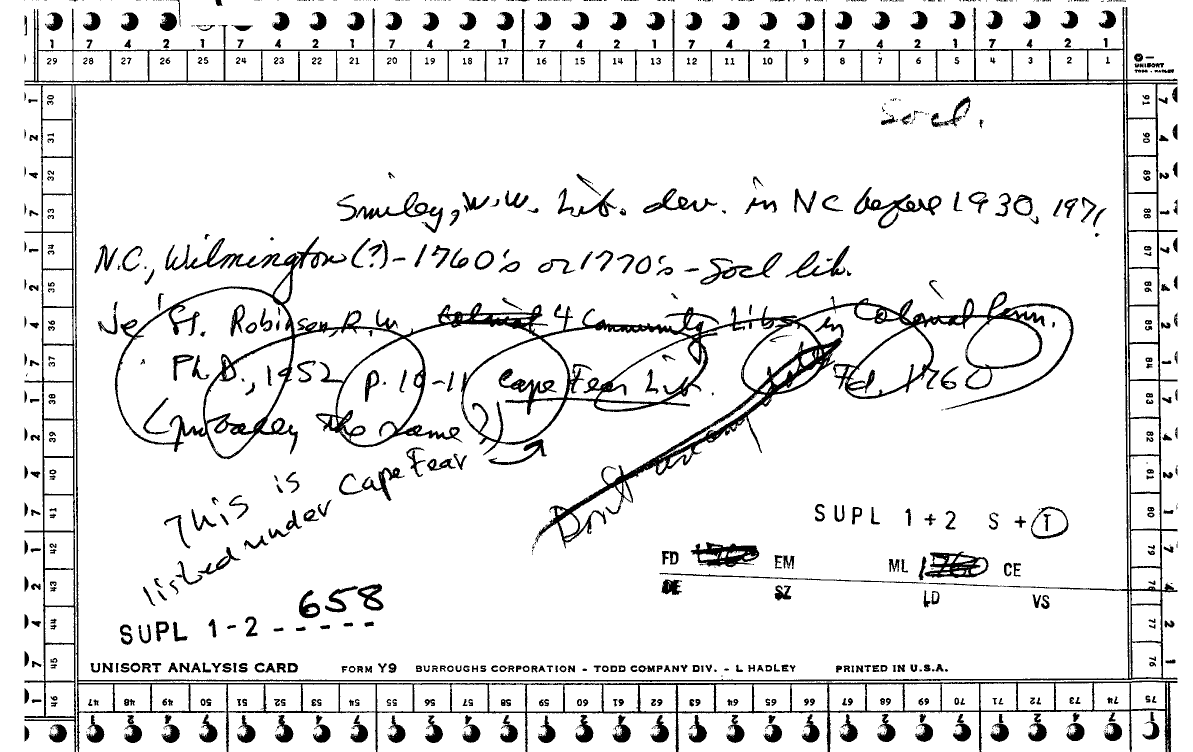 1 7 4 2 1 7 4 2 1 7 4 2 1 7 4 2 1 7 4 2 1 7 4 2 1 7 4 2 1
29 28 27 26 25 24 23 22 21 20 19 18 17 16 15 14 13 12 11 10 9 8 7 6 5 4 3 2 1
UNISORT
TODD - HADLEY
Socl.
Smiley, W.W. Lib. dev. in NC before 1930, 1971
N.C., Wilmington (?) - 1760's or 1770's - Socl lib.
Robinson, R.W. Colonial 4 Community Libs in Colonial Penn.
Ph.D., 1952 p. 10-11 Cape Fear Lib. Fd. 1760
(probably the same?)
This is
listed under Cape Fear
Don't
SUPL 1+2 S + T
FD 1760 EM ML 1760 CE
DE SZ LD VS
SUPL 1-2 - 658 - - - -
UNISORT ANALYSIS CARD FORM Y9 BURROUGHS CORPORATION - TODD COMPANY DIV. - L HADLEY PRINTED IN U.S.A.
30 31 32 33 34 35 36 37 38 39 40 41 42 43 44 45 46
47 48 49 50 51 52 53 54 55 56 57 58 59 60 61 62 63 64 65 66 67 68 69 70 71 72 73 74 75
76 77 78 79 80 81 82 83 84 85 86 87 88 89 90 91